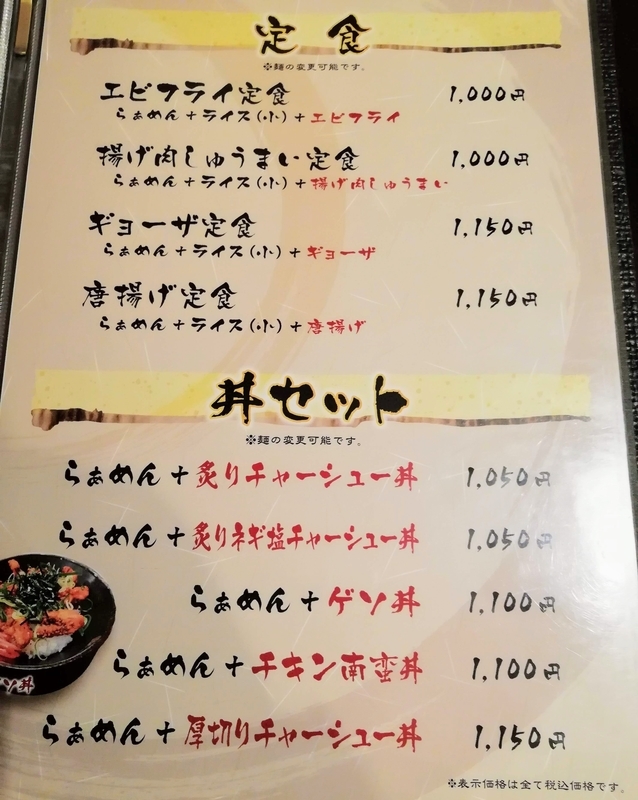 定食
※麺の変更可能です。
エビフライ定食 1,000円
らぁめん+ライス(小)+エビフライ
揚げ肉しゅうまい定食 1,000円
らぁめん+ライス(小)+揚げ肉しゅうまい
ギョーザ定食 1,150円
らぁめん+ライス(小)+ギョーザ
唐揚げ定食 1,150円
らぁめん+ライス(小)+唐揚げ
丼セット
※麺の変更可能です。
らぁめん+炙りチャーシュー丼 1,050円
らぁめん+炙りネギ塩チャーシュー丼 1,050円
らぁめん+ゲソ丼 1,100円
らぁめん+チキン南蛮丼 1,100円
ゲソ丼
らぁめん+厚切りチャーシュー丼 1,150円
※表示価格は全て税込価格です。